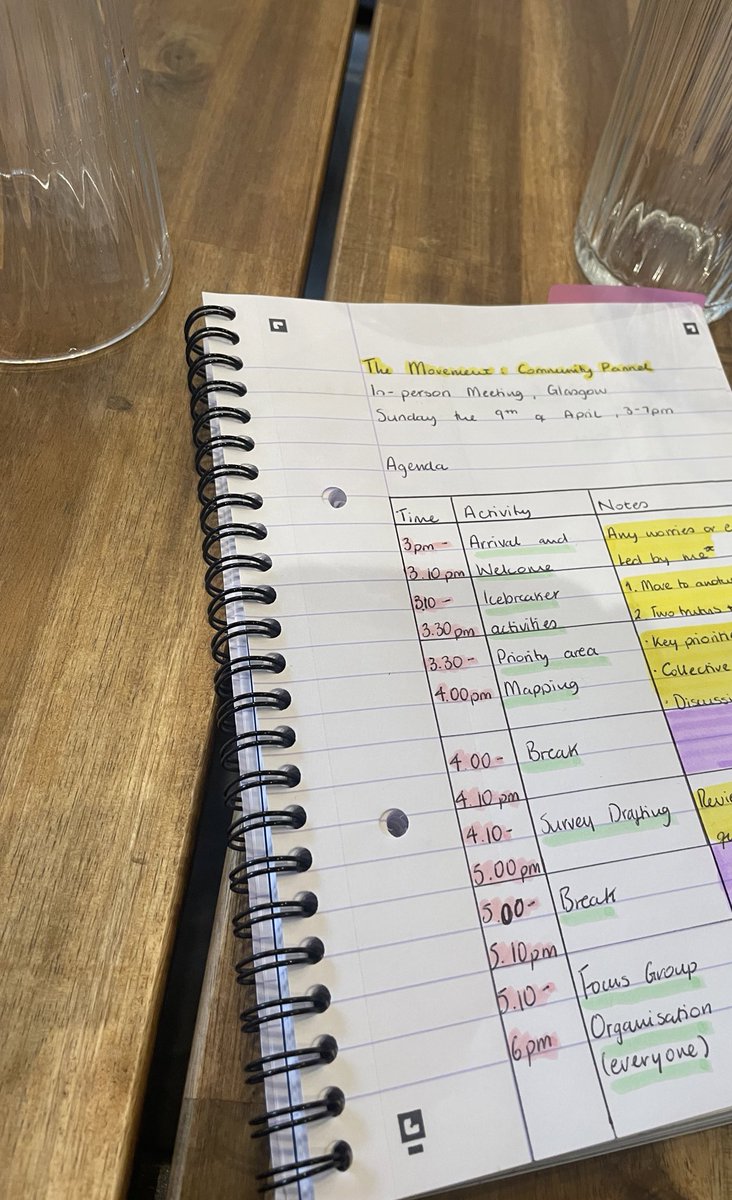 The Movement : Community Pannel
In-person Meeting, Glasgow
Sunday the 9th of April, 3-7pm
Agenda
Time Activity Notes
3pm- Arrival and Any worries or
3.10pm Welcome ted by me*
3.10- Icebreaker 1. Move to
3.30pm activities 2. Two truths
3.30- Priority area · Key
4.00pm Mapping · Collective
· Discuss
4.00- Break
4.10pm
4.10- Survey Drafting
5.00pm
5.00- Break
5.10pm
5.10- Focus Group
6pm Organisation
(everyone)